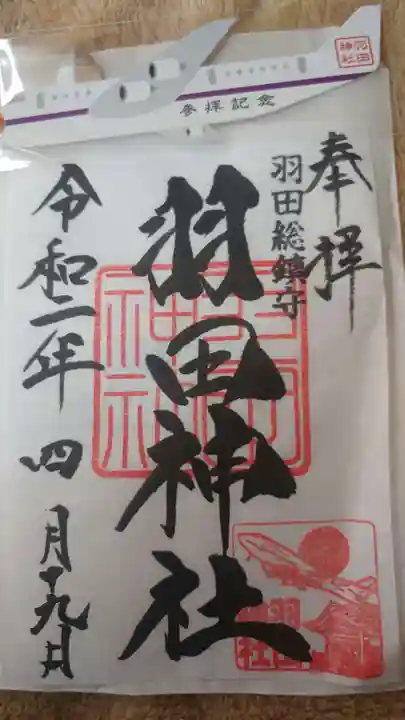 羽田神社
参拝記念
奉拝
羽田総鎮守
羽田神社
令和二年 四月十九日
羽田神社